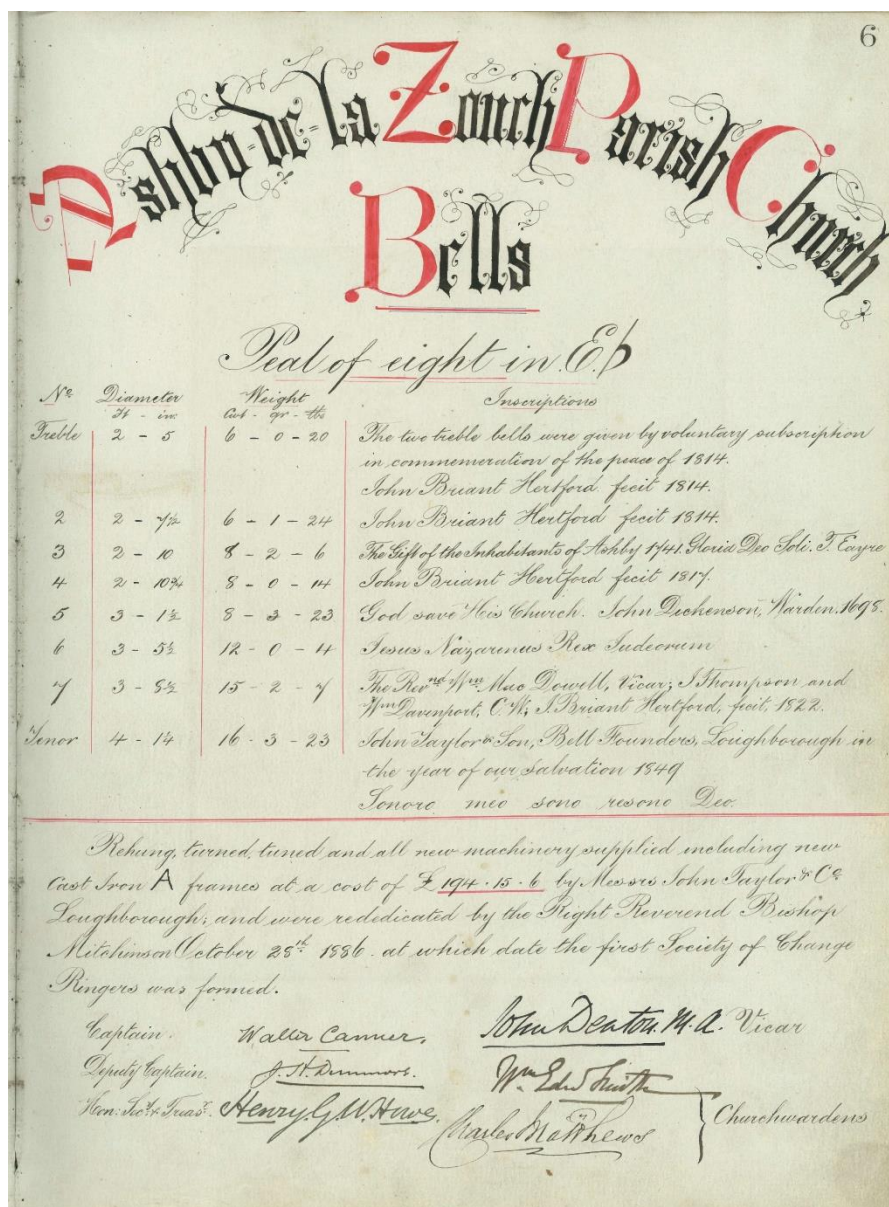 6
Ashby-de-la Zouch Parish Church
Bells
Peal of eight in E♭
No. Diameter Weight Inscriptions
ft - in. Cwt - qr - lbs
Treble 2 - 5 6 - 0 - 20 The two treble bells were given by voluntary subscription
in commemeration of the peace of 1814.
John Briant Hertford fecit 1814.
2 2 - 7½ 6 - 1 - 24 John Briant Hertford fecit 1814.
3 2 - 10 8 - 2 - 6 The Gift of the Inhabitants of Ashby 1741. Gloria Deo Soli. T. Eayre
4 2 - 10¾ 8 - 0 - 14 John Briant Hertford fecit 1817.
5 3 - 1½ 8 - 3 - 23 God save His Church. John Dickenson, Warden, 1698.
6 3 - 5½ 12 - 0 - 4 Jesus Nazarenus Rex Iudeorum
7 3 - 8½ 15 - 2 - 7 The Revnd Wm Mac Dowell, Vicar; J Thompson and
Wm Davenport, C.W; J. Briant Hertford, fecit, 1822.
Tenor 4 - 1¼ 16 - 3 - 23 John Taylor & Son, Bell Founders, Loughborough in
the year of our salvation 1849
Sonoro meo sono resono Deo.
Rehung, turned, tuned and all new machinery supplied including new
Cast Iron A frames at a cost of £194.15.6 by Messrs John Taylor & Co.
Loughborough; and were rededicated by the Right Reverend Bishop
Mitchinson October 28th 1886. at which date the first Society of Change
Ringers was formed.
Captain. Walter Canner. John Denton. M.A. Vicar
Deputy Captain. J. H. Wm Edwd Smith
Hon: Secy. & Treasr. Henry G. W. Howe. Charles Matthews Churchwardens